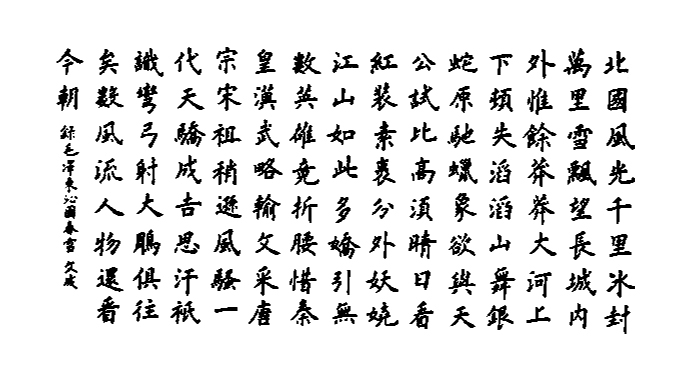 北國風光千里冰封
萬里雪飄望長城內
外惟餘莽莽大河上
下頓失滔滔山舞銀
蛇原馳蠟象欲與天
公試比高須晴日看
紅裝素裹分外妖嬈
江山如此多嬌引無
數英雄竟折腰惜秦
皇漢武略輸文采唐
宗宋祖稍遜風騷一
代天驕成吉思汗祇
識彎弓射大鵰俱往
矣數風流人物還看
今朝
錄毛澤東沁園春雪 文成